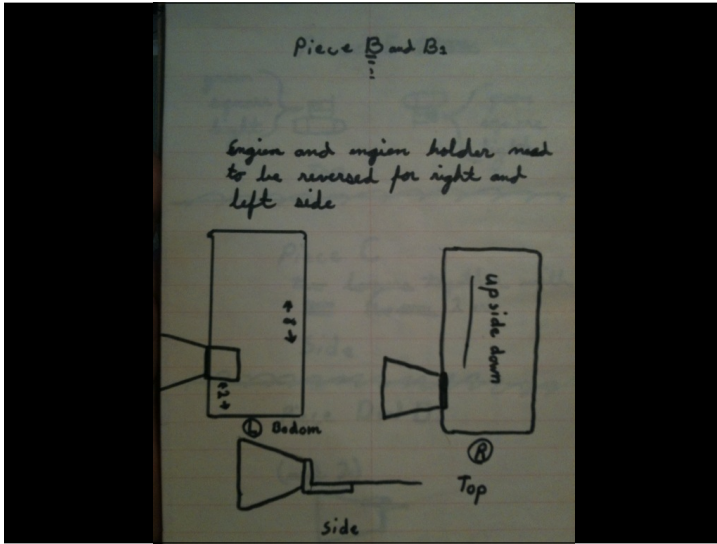 Piece B and B1
Engien and engien holder need
to be reversed for right and
left side
upside down
2
L Bodom
R
Top
side